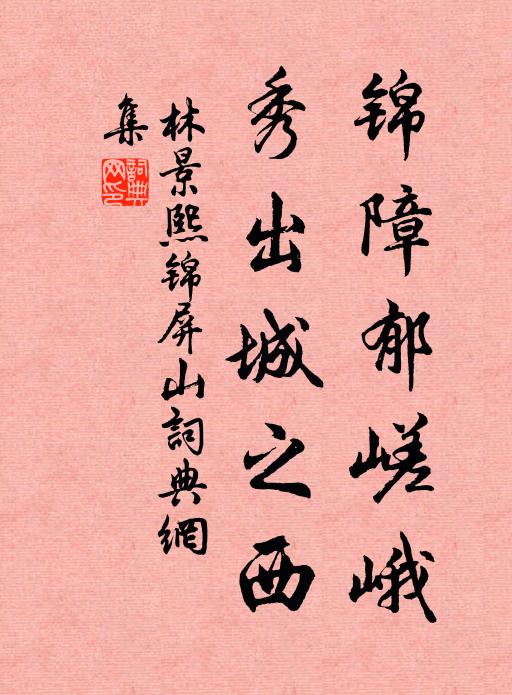 锦障郁嵯峨
秀出城之西
林景熙锦屏山詞典網
集
詞典
网印